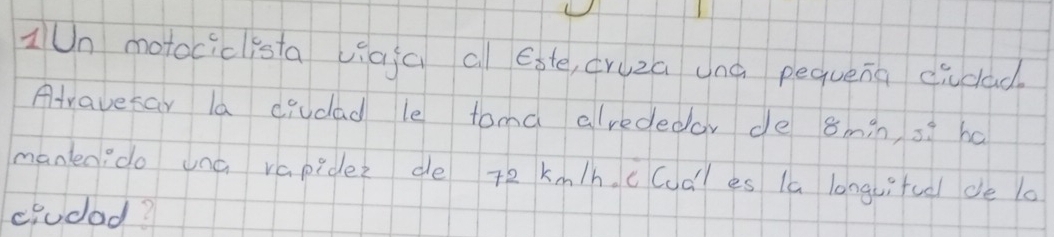 1 Un motociclista viaja al Este, cruza una pequeña ciudad.
Atravesar la ciudad le toma alrededor de 8min, si ha
mantenido una rapidez de 72 km/h. ¿Cuál es la longuitud de la
ciudad?